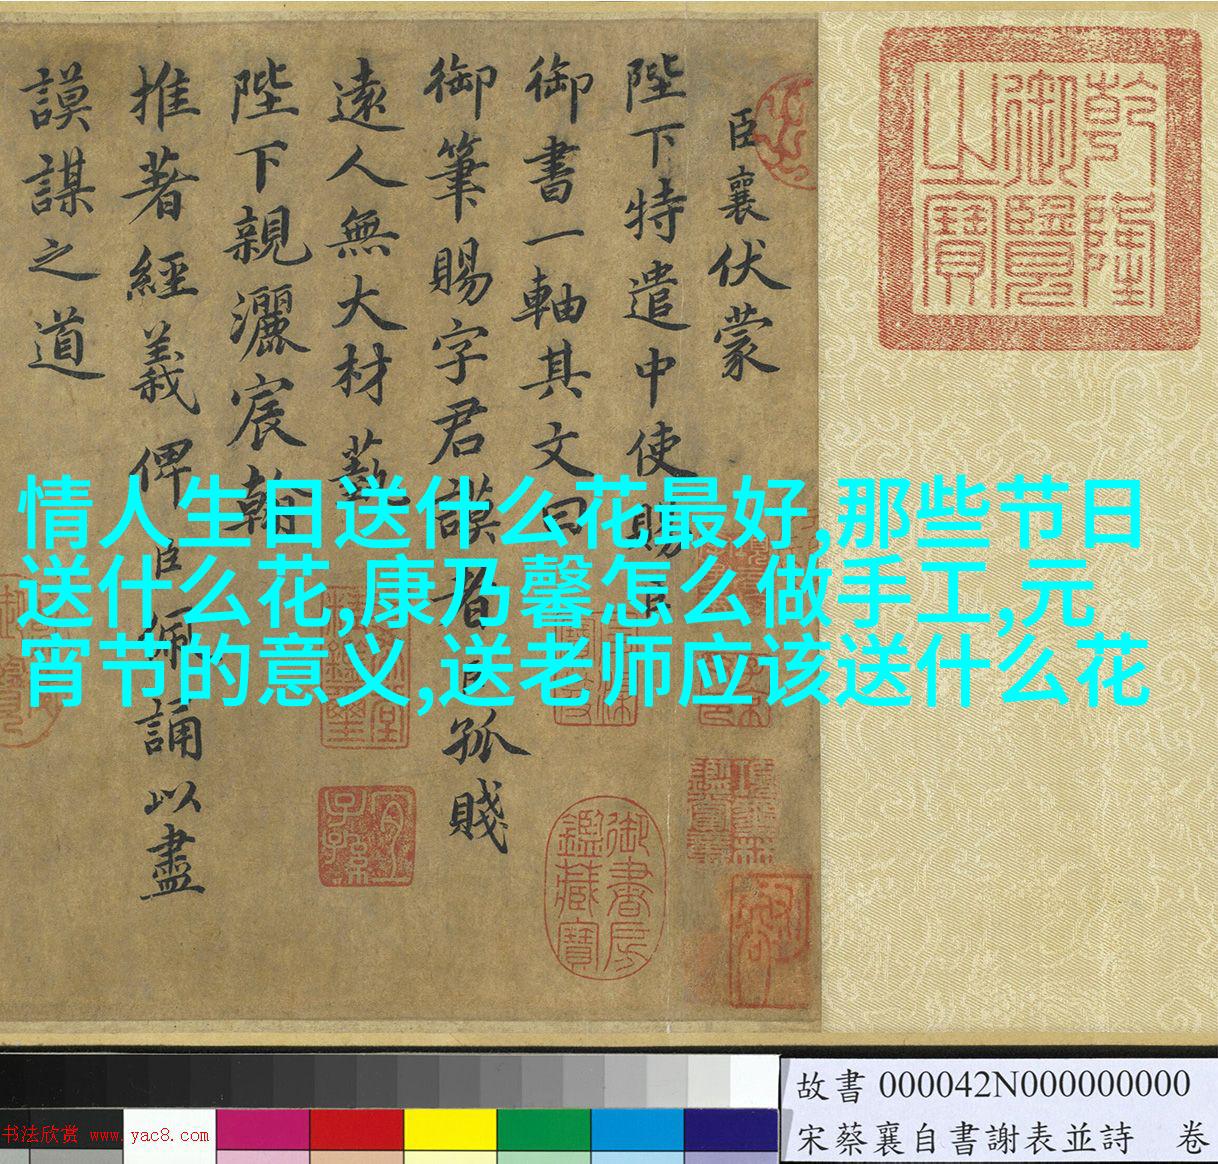 臣襄伏蒙
陛下特遣中使賜臣
御書一軸其文曰
御筆賜字君謨者臣孤賤
遠人無大材藝
陛下親灑宸翰
推著經義俾臣佩誦以盡
謨謀之道
乾隆御覽之寶
御書房鑑藏寶
情人生日送什么花最好,那些节日
送什么花,康乃馨怎么做手工,元
宵节的意义,送老师应该送什么花
故書 000042N000000000
宋蔡襄自書謝表並詩 卷
书法欣赏 www.yac8.com